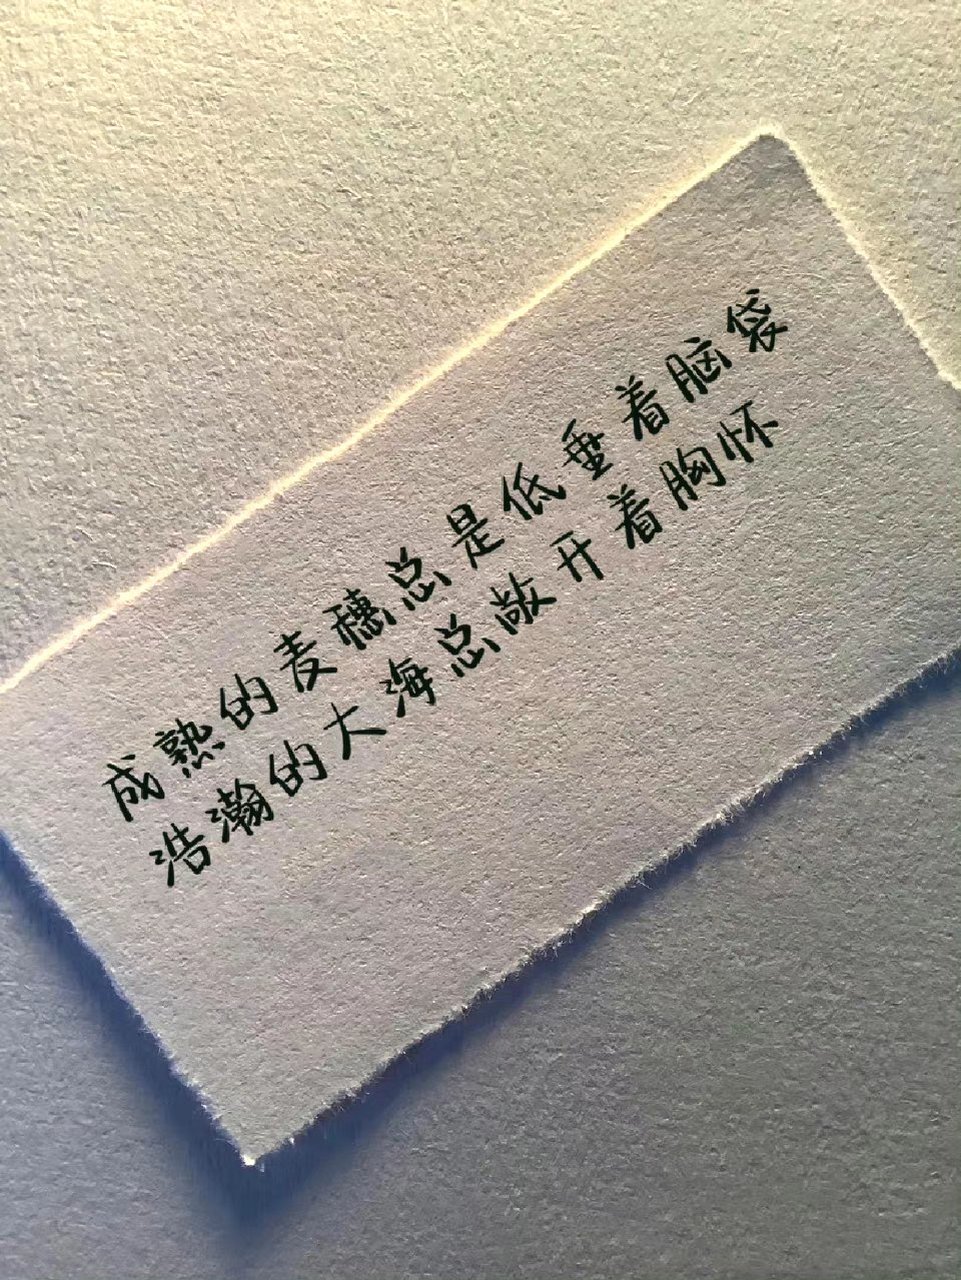 成熟的麦穗总是低垂着脑袋
浩瀚的大海总敞开着胸怀